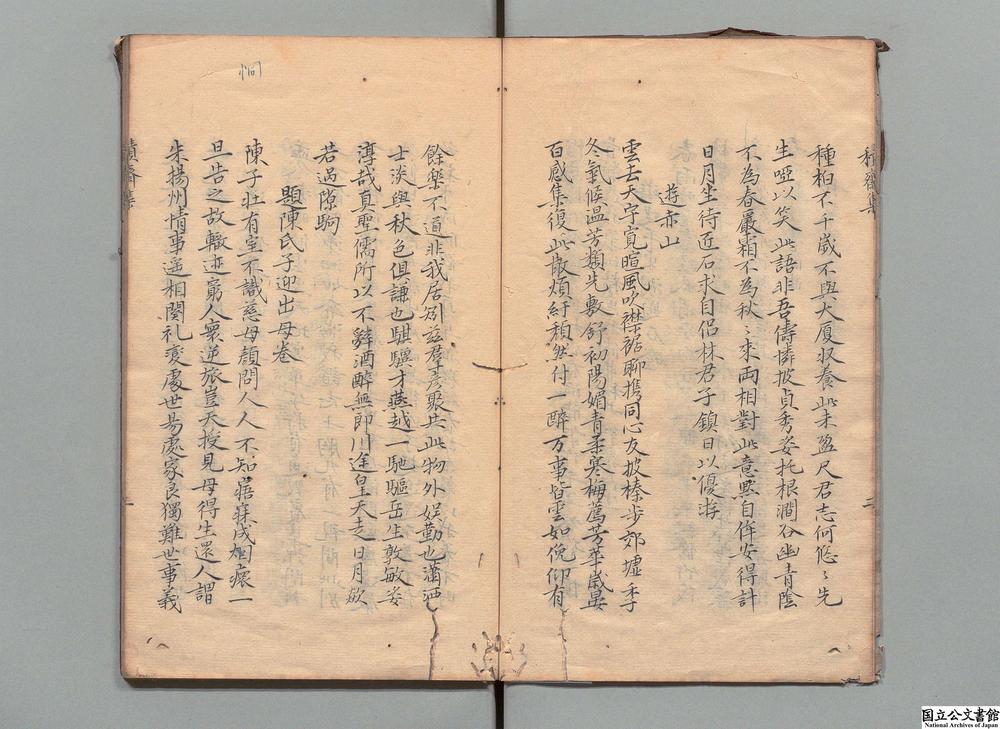 種柏不千歲不與大厦収養此未盈尺君志何悠〻先
生啞以笑此語非吾儔憐披貞秀姿托根澗谷幽青陰
不為春嚴霜不為秋〻來兩相對此意黙自侔安得計
日月坐待近石求自侶林君子鎮日以優游
遊赤山
雲去天宇寬暄風吹襟裾聊携同心友披榛步郊墟季
冬氣候温芳𩔖先敷舒初陽媚青柔寒梅薦芳華歲晏
百感集復此散煩紆頽然付一醉万事皆雲如俛仰有
餘樂不道非我居矧茲羣彦聚共此物外娯勤也瀟洒
士淡與秋色俱謙也騏驥才燕越一馳驅岳生敦敏姿
淳哉真聖儒所以不辭酒醉無即川途皇天走日月欻
若過隙駒
題陳氏子迎出母卷
陳子壯有室不識慈母顔問人人不知寤寐成恫瘝一
旦告之故轍迹窮人寰逆旅豈天授見母得生還人謂
朱揚州情事遥相関礼変處世易處家良獨難世事義
恫
二
一
国立公文書館
National Archives of Japan